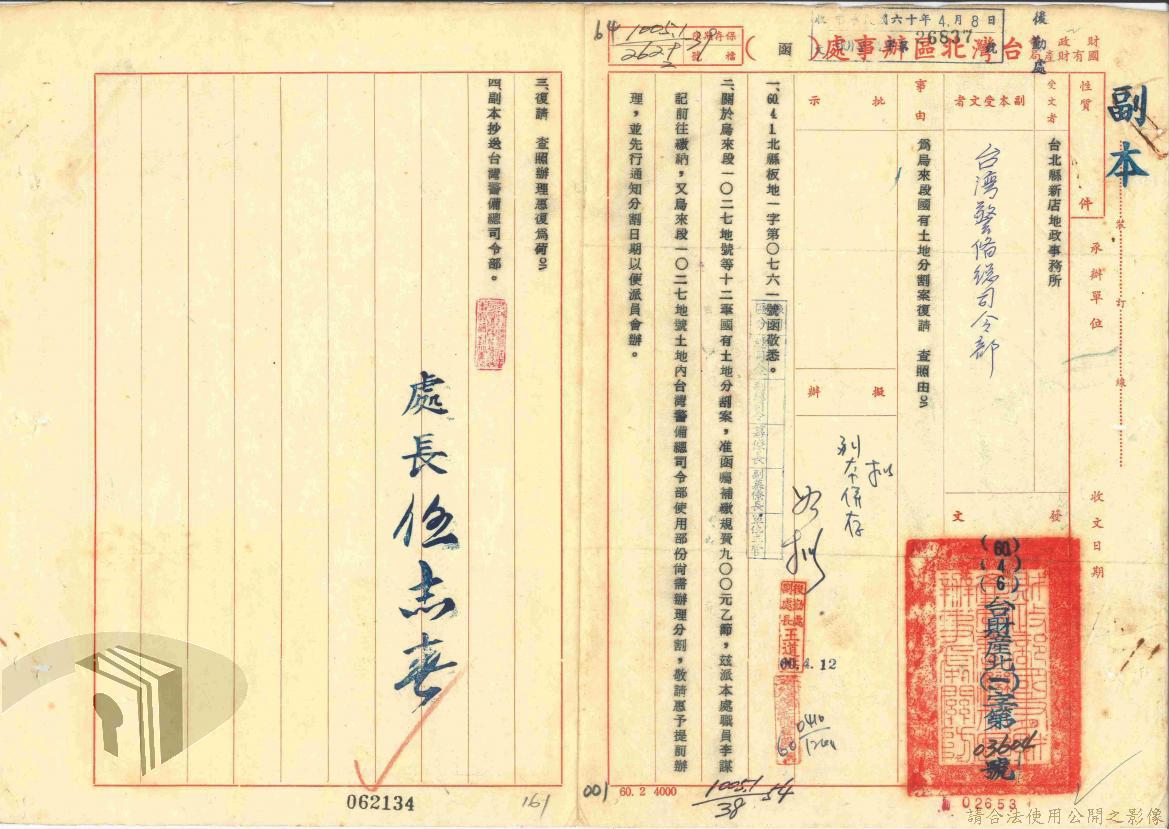 副本
財政部
國有財產局
台灣北區辦事處
(函)
後勤處
中華民國六十年4月8日
26837
保存期限
檔號
1005.1
262.9
64
39
2
性質
件
承辦單位
收文日期
裝 訂 線
受文者
台北縣新店地政事務所
副本受文者
台湾警备総司令部
發文
(60)(4)(6)台財產北(一)字第03604號
事由
為烏來段國有土地分割案復請 查照由
批示
擬辦
擬
副本併存
如拟
一、60.4.1.北縣板地一字第〇七六一號函敬悉。
二、關於烏來段一〇二七地號等十二筆國有土地分割案,准函囑補繳規費九〇〇元乙節,茲派本處職員李謀
記前往繳納,又烏來段一〇二七地號土地內台灣警備總司令部使用部份尚需辦理分割,敬請惠予提前辦
理,並先行通知分割日期以便派員會辦。
後勤處
副處長王道
60.4.12
0410
1200
60
60. 2 4000
1005.1
38
54
001
02653
三、復請 查照辦理惠復為荷。
四、副本抄送台灣警備總司令部。
處長伍志春
062134
161
請合法使用公開之影像